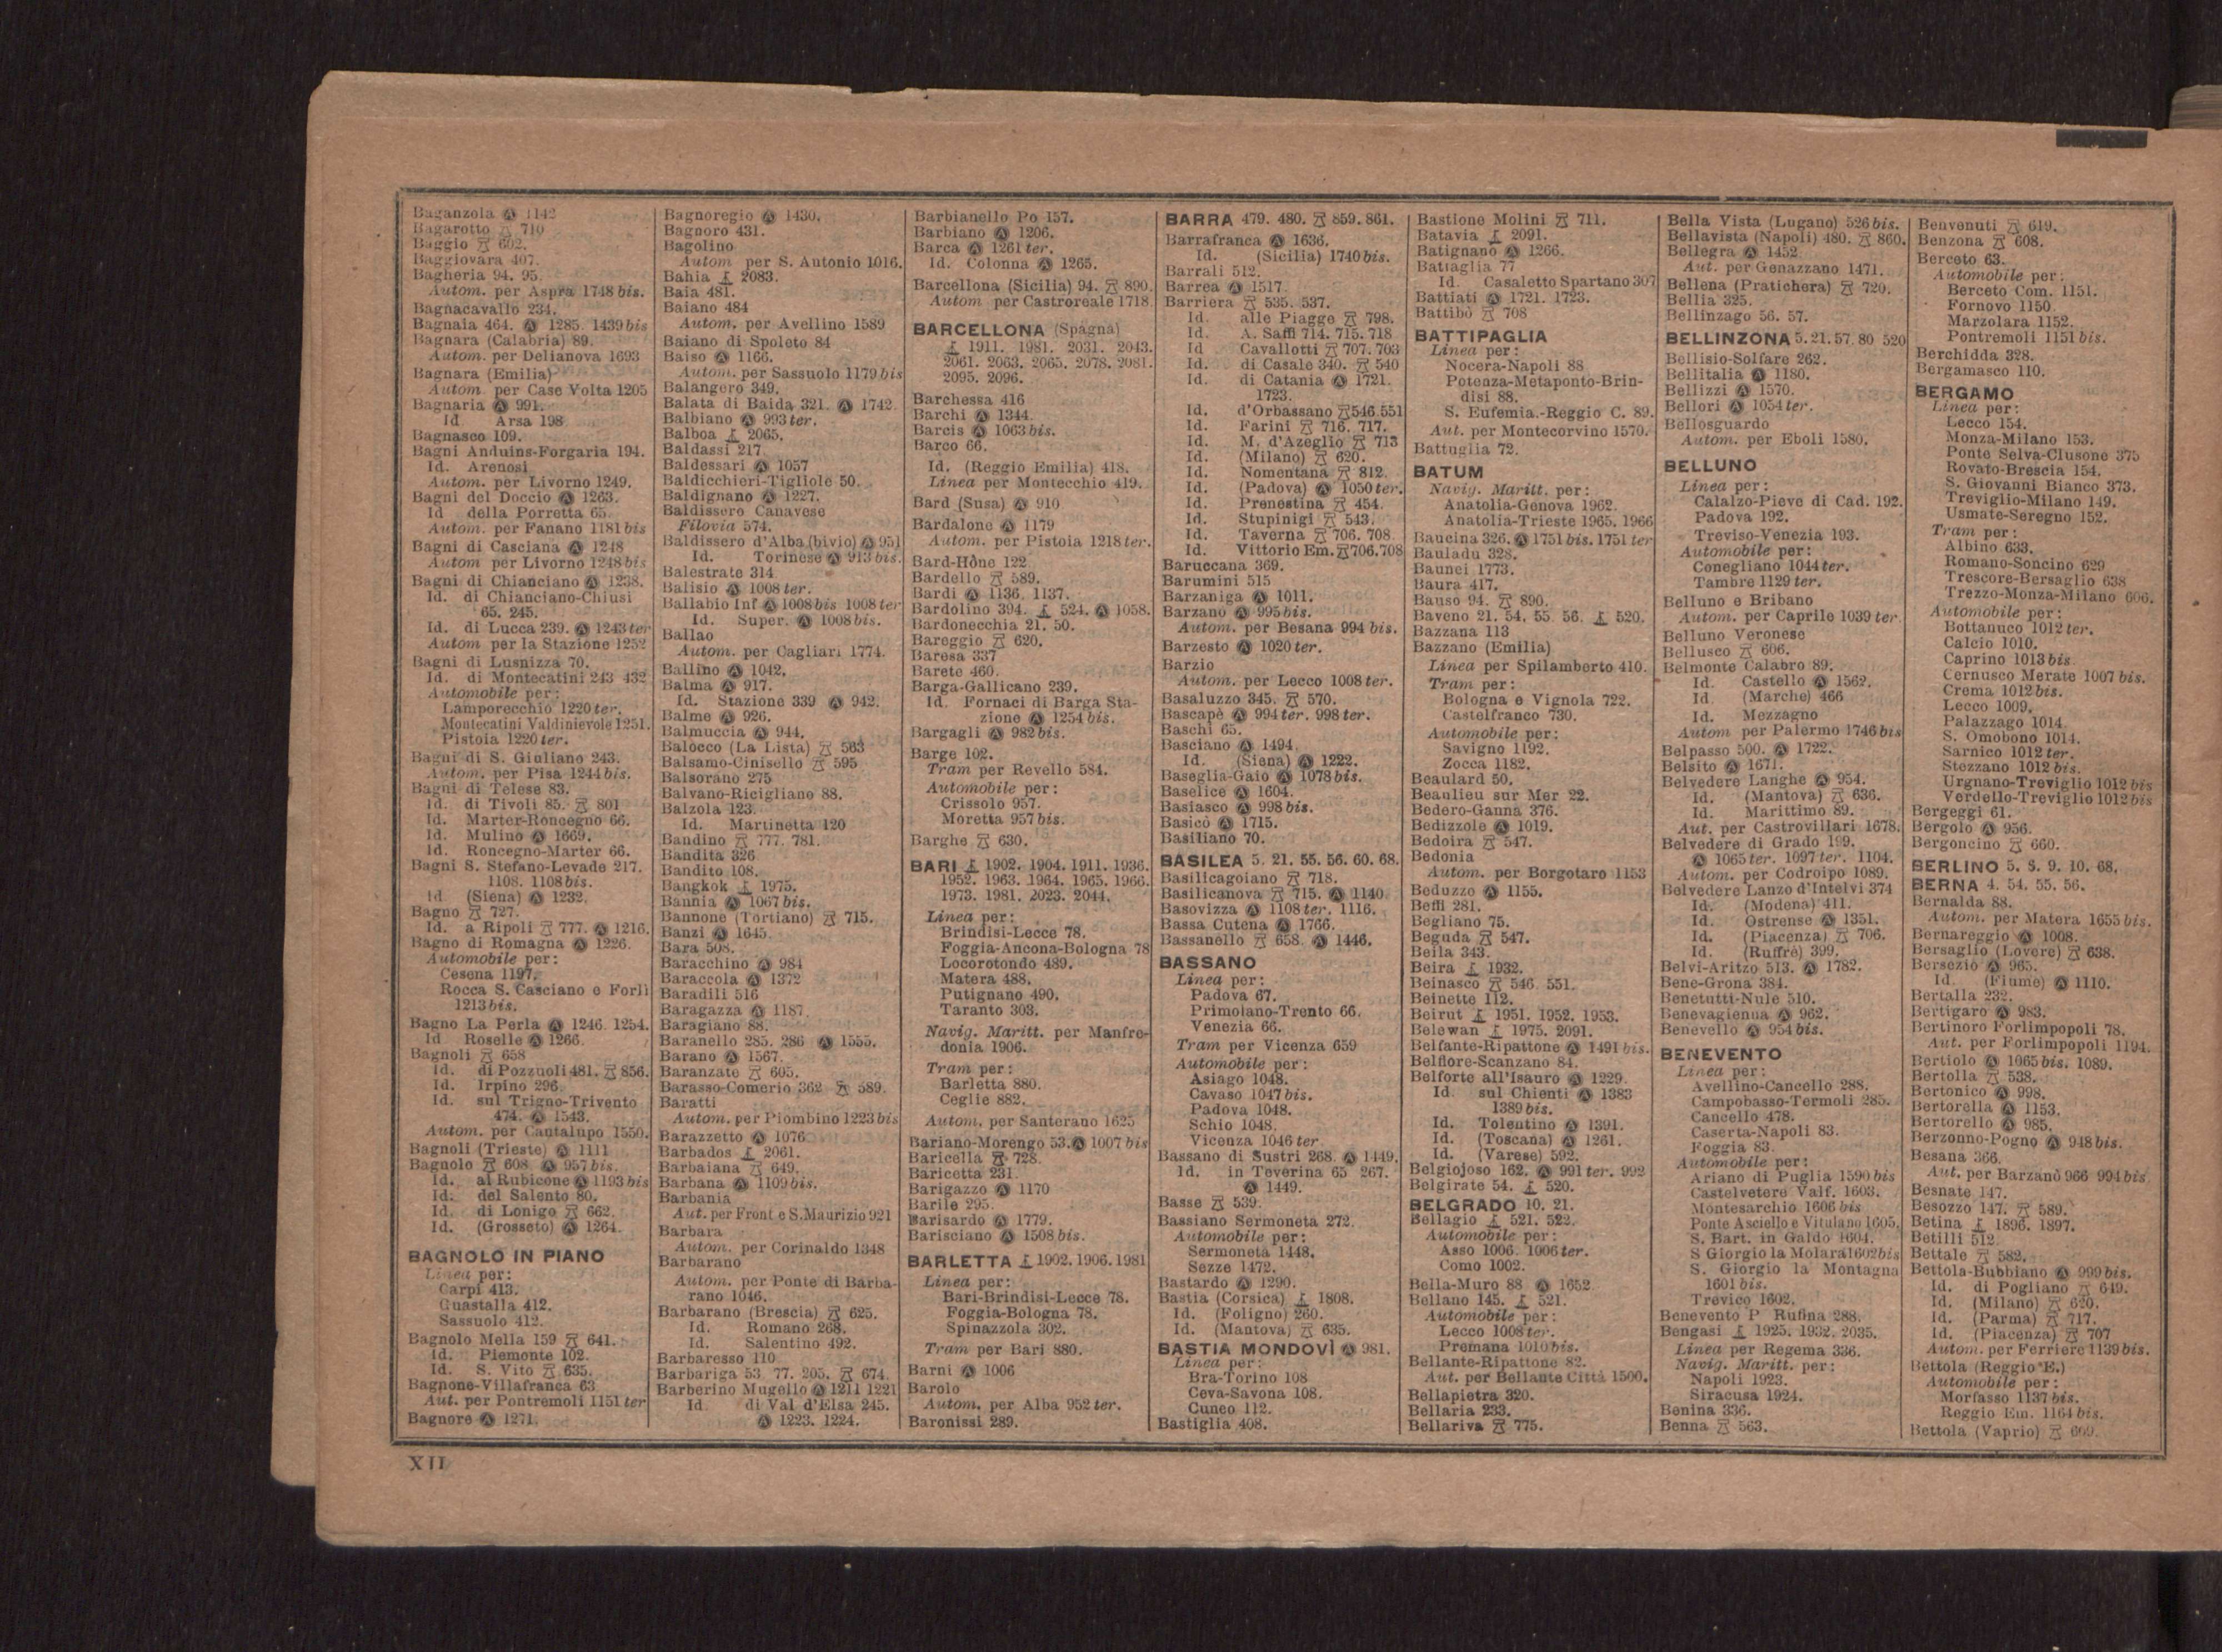 Baganzola Ⓐ 1142
Bagarotto 710
Baggio 602.
Baggiovara 407.
Bagheria 94. 95.
Autom. per Aspra 1748 bis.
Bagnacavallo 234.
Bagnaia 464. Ⓐ 1285. 1439 bis
Bagnara (Calabria) 89.
Autom. per Delianova 1693
Bagnara (Emilia)
Autom. per Case Volta 1205
Bagnaria Ⓐ 991.
Id. Arsa 198
Bagnasco 109.
Bagni Anduins-Forgaria 194.
Id. Arenosi
Autom. per Livorno 1249.
Bagni del Doccio Ⓐ 1263.
Id della Porretta 65.
Autom. per Fanano 1181 bis
Bagni di Casciana Ⓐ 1248
Autom per Livorno 1248 bis
Bagni di Chianciano Ⓐ 1238.
Id. di Chianciano-Chiusi
65. 245.
Id. di Lucca 239. Ⓐ 1243 ter
Autom per la Stazione 1252
Bagni di Lusnizza 70.
Id. di Montecatini 243 432
Automobile per:
Lamporecchio 1220 ter.
Montecatini Valdinievole 1251.
Pistoia 1220 ter.
Bagni di S. Giuliano 243.
Autom. per Pisa 1244 bis.
Bagni di Telese 83.
Id. di Tivoli 85. 801
Id. Marter-Roncegno 66.
Id. Mulino Ⓐ 1669.
Id. Roncegno-Marter 66.
Bagni S. Stefano-Levade 217.
1108. 1108 bis.
Id (Siena) Ⓐ 1232.
Bagno 727.
Id. a Ripoli 777. Ⓐ 1216.
Bagno di Romagna Ⓐ 1226.
Automobile per:
Cesena 1197.
Rocca S. Casciano e Forlì
1213 bis.
Bagno La Perla Ⓐ 1246. 1254.
Id Roselle Ⓐ 1266.
Bagnoli 658
Id. di Pozzuoli 481. 856.
Id. Irpino 296.
Id. sul Trigno-Trivento
474. Ⓐ 1543.
Autom. per Cantalupo 1550.
Bagnoli (Trieste) Ⓐ 1111
Bagnolo 608. Ⓐ 957 bis.
Id. al Rubicone Ⓐ 1193 bis
Id. del Salento 80.
Id. di Lonigo 662.
Id. (Grosseto) Ⓐ 1264.
BAGNOLO IN PIANO
Linea per:
Carpi 413.
Guastalla 412.
Sassuolo 412.
Bagnolo Mella 159 641.
Id. Piemonte 102.
Id. S. Vito 635.
Bagnone-Villafranca 63
Aut. per Pontremoli 1151 ter
Bagnore Ⓐ 1271.
Bagnoregio Ⓐ 1430.
Bagnoro 431.
Bagolino
Autom per S. Antonio 1016.
Bahia 2083.
Baia 481.
Baiano 484
Autom. per Avellino 1589
Baiano di Spoleto 84
Baiso Ⓐ 1166.
Autom. per Sassuolo 1179 bis
Balangero 349.
Balata di Baida 321. Ⓐ 1742
Balbiano Ⓐ 993 ter.
Balboa 2065.
Baldassi 217
Baldessari Ⓐ 1057
Baldicchieri-Tigliole 50.
Baldignano Ⓐ 1227.
Baldissero Canavese
Filovia 574.
Baldissero d'Alba (bivio) Ⓐ 951
Id. Torinese Ⓐ 913 bis.
Balestrate 314
Balisio Ⓐ 1008 ter.
Ballabio Inf Ⓐ 1008 bis 1008 ter
Id. Super. Ⓐ 1008 bis.
Ballao
Autom. per Cagliari 1774.
Ballino Ⓐ 1042.
Balma Ⓐ 917.
Id. Stazione 339 Ⓐ 942.
Balme Ⓐ 926.
Balmuccia Ⓐ 944.
Balocco (La Lista) 563
Balsamo-Cinisello 595
Balsorano 275
Balvano-Ricigliano 88.
Balzola 123.
Id. Martinetta 120
Bandino 777. 781.
Bandita 326
Bandito 108.
Bangkok 1975.
Bannia Ⓐ 1067 bis.
Bannone (Tortiano) 715.
Banzi Ⓐ 1645.
Bara 508.
Baracchino Ⓐ 984
Baraccola Ⓐ 1372
Baradili 516
Baragazza Ⓐ 1187.
Baragiano 88.
Baranello 285. 286 Ⓐ 1555.
Barano Ⓐ 1567.
Baranzate 605.
Barasso-Comerio 362 589.
Baratti
Autom. per Piombino 1223 bis
Barazzetto Ⓐ 1076
Barbados 2061.
Barbaiana 649.
Barbana Ⓐ 1109 bis.
Barbania
Aut. per Front e S. Maurizio 921
Barbara
Autom. per Corinaldo 1348
Barbarano
Autom. per Ponte di Barba-
rano 1046.
Barbarano (Brescia) 625.
Id. Romano 268.
Id. Salentino 492.
Barbaresso 110
Barbariga 53 77. 205. 674.
Barberino Mugello Ⓐ 1211 1221
Id. di Val d'Elsa 245.
Ⓐ 1223. 1224.
Barbianello Po 157.
Barbiano Ⓐ 1206.
Barca Ⓐ 1261 ter.
Id. Colonna Ⓐ 1265.
Barcellona (Sicilia) 94. 890.
Autom per Castroreale 1718.
BARCELLONA (Spagna)
1911. 1981. 2031. 2043.
2061. 2063. 2065. 2078. 2081.
2095. 2096.
Barchessa 416
Barchi Ⓐ 1344.
Barcis Ⓐ 1063 bis.
Barco 66.
Id. (Reggio Emilia) 418.
Linea per Montecchio 419.
Bard (Susa) Ⓐ 910
Bardalone Ⓐ 1179
Autom. per Pistoia 1218 ter.
Bard-Hône 122
Bardello 589.
Bardi Ⓐ 1136. 1137.
Bardolino 394. 524. Ⓐ 1058.
Bardonecchia 21. 50.
Bareggio 620.
Baresa 337
Barete 460.
Barga-Gallicano 239.
Id. Fornaci di Barga Sta-
zione Ⓐ 1254 bis.
Bargagli Ⓐ 982 bis.
Barge 102.
Tram per Revello 584.
Automobile per:
Crissolo 957.
Moretta 957 bis.
Barghe 630.
BARI 1902. 1904. 1911. 1936.
1952. 1963. 1964. 1965. 1966.
1973. 1981. 2023. 2044.
Linea per:
Brindisi-Lecce 78.
Foggia-Ancona-Bologna 78
Locorotondo 489.
Matera 488.
Putignano 490.
Taranto 303.
Navig. Maritt. per Manfre-
donia 1906.
Tram per:
Barletta 880.
Ceglie 882.
Autom. per Santerano 1625
Bariano-Morengo 53. Ⓐ 1007 bis
Baricella 728.
Baricetta 231.
Barigazzo Ⓐ 1170
Barile 295.
Barisardo Ⓐ 1779.
Barisciano Ⓐ 1508 bis.
BARLETTA 1902. 1906. 1981
Linea per:
Bari-Brindisi-Lecce 78.
Foggia-Bologna 78.
Spinazzola 302.
Tram per Bari 880.
Barni Ⓐ 1006
Barolo
Autom. per Alba 952 ter.
Baronissi 289.
BARRA 479. 480. 859. 861.
Barrafranca Ⓐ 1636.
Id. (Sicilia) 1740 bis.
Barrali 512.
Barrea Ⓐ 1517.
Barriera 535. 537.
Id. alle Piagge 798.
Id. A. Saffi 714. 715. 718
Id Cavallotti 707. 703
Id. di Casale 340. 540
Id. di Catania Ⓐ 1721.
1723.
Id. d'Orbassano 546. 551
Id. Farini 716. 717.
Id. M. d'Azeglio 713
Id. (Milano) 620.
Id. Nomentana 812.
Id. (Padova) Ⓐ 1050 ter.
Id. Prenestina 454.
Id. Stupinigi 543.
Id. Taverna 706. 708
Id. Vittorio Em. 706. 708
Baruccana 369.
Barumini 515
Barzaniga Ⓐ 1011.
Barzanò Ⓐ 995 bis.
Autom. per Besana 994 bis.
Barzesto Ⓐ 1020 ter.
Barzio
Autom. per Lecco 1008 ter.
Basaluzzo 345. 570.
Bascapè Ⓐ 994 ter. 998 ter.
Baschi 65.
Basciano Ⓐ 1494.
Id. (Siena) Ⓐ 1222.
Baseglia-Gaio Ⓐ 1078 bis.
Baselice Ⓐ 1604.
Basiasco Ⓐ 998 bis.
Basicò Ⓐ 1715.
Basiliano 70.
BASILEA 5. 21. 55. 56. 60. 68.
Basilicagoiano 718.
Basilicanova 715. Ⓐ 1140.
Basovizza Ⓐ 1108 ter. 1116.
Bassa Cutena Ⓐ 1766.
Bassanello 658. Ⓐ 1446.
BASSANO
Linea per:
Padova 67.
Primolano-Trento 66.
Venezia 66.
Tram per Vicenza 659
Automobile per:
Asiago 1048.
Cavaso 1047 bis.
Padova 1048.
Schio 1048.
Vicenza 1046 ter.
Bassano di Sustri 268. Ⓐ 1449.
Id. in Teverina 65 267.
Ⓐ 1449.
Basse 539.
Bassiano Sermoneta 272.
Automobile per:
Sermoneta 1448.
Sezze 1472.
Bastardo Ⓐ 1290.
Bastia (Corsica) 1808.
Id. (Foligno) 260.
Id. (Mantova) 635.
BASTIA MONDOVÌ Ⓐ 981.
Linea per:
Bra-Torino 108
Ceva-Savona 108.
Cuneo 112.
Bastiglia 408.
Bastione Molini 711.
Batavia 2091.
Batignano Ⓐ 1266.
Battaglia 77
Id. Casaletto Spartano 307
Battiati Ⓐ 1721. 1723.
Battibò 708
BATTIPAGLIA
Linea per:
Nocera-Napoli 88
Potenza-Metaponto-Brin-
disi 88.
S. Eufemia.-Reggio C. 89.
Aut. per Montecorvino 1570.
Battuglia 72.
BATUM
Navig. Maritt. per:
Anatolia-Genova 1962.
Anatolia-Trieste 1965. 1966
Baucina 326. Ⓐ 1751 bis. 1751 ter
Bauladu 328.
Baunei 1773.
Baura 417.
Bauso 94. 890.
Baveno 21. 54. 55. 56. 520.
Bazzana 113
Bazzano (Emilia)
Linea per Spilamberto 410.
Tram per:
Bologna e Vignola 722.
Castelfranco 730.
Automobile per:
Savigno 1192.
Zocca 1182.
Beaulard 50.
Beaulieu sur Mer 22.
Bedero-Ganna 376.
Bedizzole Ⓐ 1019.
Bedoira 547.
Bedonia
Autom. per Borgotaro 1153
Beduzzo Ⓐ 1155.
Beffi 281.
Begliano 75.
Beguda 547.
Beila 343.
Beira 1932.
Beinasco 546. 551.
Beinette 112.
Beirut 1951. 1952. 1953.
Belewan 1975. 2091.
Belfante-Ripattone Ⓐ 1491 bis.
Belfiore-Scanzano 84.
Belforte all'Isauro Ⓐ 1229.
Id. sul Chienti Ⓐ 1383
1389 bis.
Id. Tolentino Ⓐ 1391.
Id. (Toscana) Ⓐ 1261.
Id. (Varese) 592.
Belgiojoso 162. Ⓐ 991 ter. 992
Belgirate 54. 520.
BELGRADO 10. 21.
Bellagio 521. 522.
Automobile per:
Asso 1006. 1006 ter.
Como 1002.
Bella-Muro 88 Ⓐ 1652
Bellano 145. 521.
Automobile per:
Lecco 1008 ter.
Premana 1010 bis.
Bellante-Ripattone 82.
Aut. per Bellante Città 1500.
Bellapietra 320.
Bellaria 233.
Bellariva 775.
Bella Vista (Lugano) 526 bis.
Bellavista (Napoli) 480. 860.
Bellegra Ⓐ 1452
Aut. per Genazzano 1471.
Bellena (Pratichera) 720.
Bellia 325.
Bellinzago 56. 57.
BELLINZONA 5. 21. 57. 80 520
Bellisio-Solfare 262.
Bellitalia Ⓐ 1180.
Bellizzi Ⓐ 1570.
Bellori Ⓐ 1054 ter.
Bellosguardo
Autom. per Eboli 1580.
BELLUNO
Linea per:
Calalzo-Pieve di Cad. 192.
Padova 192.
Treviso-Venezia 193.
Automobile per:
Conegliano 1044 ter.
Tambre 1129 ter.
Belluno e Bribano
Autom. per Caprile 1039 ter.
Belluno Veronese
Bellusco 606.
Belmonte Calabro 89.
Id. Castello Ⓐ 1562.
Id. (Marche) 466
Id. Mezzagno
Autom per Palermo 1746 bis
Belpasso 500. Ⓐ 1722.
Belsito Ⓐ 1671.
Belvedere Langhe Ⓐ 954.
Id. (Mantova) 636.
Id. Marittimo 89.
Aut. per Castrovillari 1678.
Belvedere di Grado 199.
Ⓐ 1065 ter. 1097 ter. 1104.
Autom. per Codroipo 1089.
Belvedere Lanzo d'Intelvi 374
Id. (Modena) 411.
Id. Ostrense Ⓐ 1351.
Id. (Piacenza) 706.
Id. (Ruffrè) 399.
Belvì-Aritzo 513. Ⓐ 1782.
Bene-Grona 384.
Benetutti-Nule 510.
Benevagienna Ⓐ 962.
Benevello Ⓐ 954 bis.
BENEVENTO
Linea per:
Avellino-Cancello 288.
Campobasso-Termoli 285.
Cancello 478.
Caserta-Napoli 83.
Foggia 83.
Automobile per:
Ariano di Puglia 1590 bis
Castelvetere Valf. 1603.
Montesarchio 1606 bis
Ponte Asciello e Vitulano 1605.
S. Bart. in Galdo 1604.
S Giorgio la Molara 1602 bis
S. Giorgio la Montagna
1601 bis.
Trevico 1602.
Benevento P Rufina 288.
Bengasi 1925. 1932. 2035.
Linea per Regema 336.
Navig. Maritt. per:
Napoli 1923.
Siracusa 1924.
Benina 336.
Benna 563.
Benvenuti 619.
Benzona 608.
Berceto 63.
Automobile per:
Berceto Com. 1151.
Fornovo 1150.
Marzolara 1152.
Pontremoli 1151 bis.
Berchidda 328.
Bergamasco 110.
BERGAMO
Linea per:
Lecco 154.
Monza-Milano 153.
Ponte Selva-Clusone 375
Rovato-Brescia 154.
S. Giovanni Bianco 373.
Treviglio-Milano 149.
Usmate-Seregno 152.
Tram per:
Albino 633.
Romano-Soncino 629
Trescore-Bersaglio 638
Trezzo-Monza-Milano 606.
Automobile per:
Bottanuco 1012 ter.
Calcio 1010.
Caprino 1013 bis
Cernusco Merate 1007 bis.
Crema 1012 bis.
Lecco 1009.
Palazzago 1014.
S. Omobono 1014.
Sarnico 1012 ter.
Stezzano 1012 bis.
Urgnano-Treviglio 1012 bis
Verdello-Treviglio 1012 bis
Bergeggi 61.
Bergolo Ⓐ 956.
Bergoncino 660.
BERLINO 5. 8. 9. 10. 68.
BERNA 4. 54. 55. 56.
Bernalda 88.
Autom. per Matera 1655 bis.
Bernareggio Ⓐ 1008.
Bersaglio (Lovere) 638.
Bersezio Ⓐ 965.
Id. (Fiume) Ⓐ 1110.
Bertalla 232.
Bertigaro Ⓐ 983.
Bertinoro Forlimpopoli 78.
Aut. per Forlimpopoli 1194.
Bertiolo Ⓐ 1065 bis. 1089.
Bertolla 538.
Bertonico Ⓐ 998.
Bertorella Ⓐ 1153.
Bertorello Ⓐ 985.
Berzonno-Pogno Ⓐ 948 bis.
Besana 366.
Aut. per Barzanò 966 994 bis
Besnate 147.
Besozzo 147. 589.
Betina 1896. 1897.
Betilli 512
Bettale 582.
Bettola-Bubbiano Ⓐ 999 bis.
Id. di Pogliano 649.
Id. (Milano) 620.
Id. (Parma) 717.
Id. (Piacenza) 707
Autom. per Ferriere 1139 bis.
Bettola (Reggio E.)
Automobile per:
Morfasso 1137 bis.
Reggio Em. 1164 bis.
Bettola (Vaprio) 609.
XII